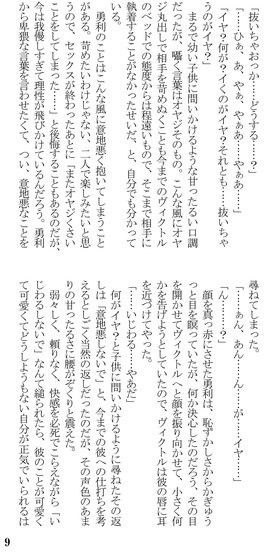 「抜いちゃおっか……どうする……?」
「……ひぁ、あ、やぁ、やぁあ……やぁあ……」
「イヤ?何が?イくのがイヤ?それとも……抜いちゃ
うのがイヤ?」
　まるで幼い子供に問いかけるような甘ったるい口調
だったが、囁く言葉はオヤジそのもの。こんな風にオヤ
ジ丸出しで相手を苛めぬくことも今までのヴィクトル
のベッドでの態度からは程遠いもので、そこまで相手に
執着することがなかったせいだ、と、自分でも分かって
いる。
　勇利のことはこんな風に意地悪く抱いてしまうこと
がある。苛めたいわけじゃない、二人で楽しみたいと思
うので、セックスが終わったあとに「またオヤジくさい
ことをしてしまった……」と後悔することもあるのだが、
今は我慢しすぎて理性が飛びかけているんだろう。勇利
から卑猥な言葉を言わせたくて、つい、意地悪なことを
尋ねてしまった。
「……ぁん、あん……ん……が……イヤ……」
「ん……?」
　顔を真っ赤にさせた勇利は、恥ずかしさからかぎゅう
っと目を瞑っていたが、何か決心したのだろう、その目
を開かせてヴィクトルへと顔を振り向かせて、小さく何
かを告げようとしていたので、ヴィクトルは彼の唇に耳
を近づけてやった。
「……いじわる……やあだ」
　何がイヤ?と子供に問いかけるように尋ねたその返
しは「意地悪しないで」と、今までの彼への仕打ちを考
えるとしごく当然の返しだったのだが、その声色のあま
りの甘ったるさに腰がぞくりと震えた。
　弱々しく、頼りなく、快感を必死でこらえながら「い
じわるしないで」なんて縋られたら、彼のことが可愛く
て可愛くてどうしようもない自分が正気でいられるは
9